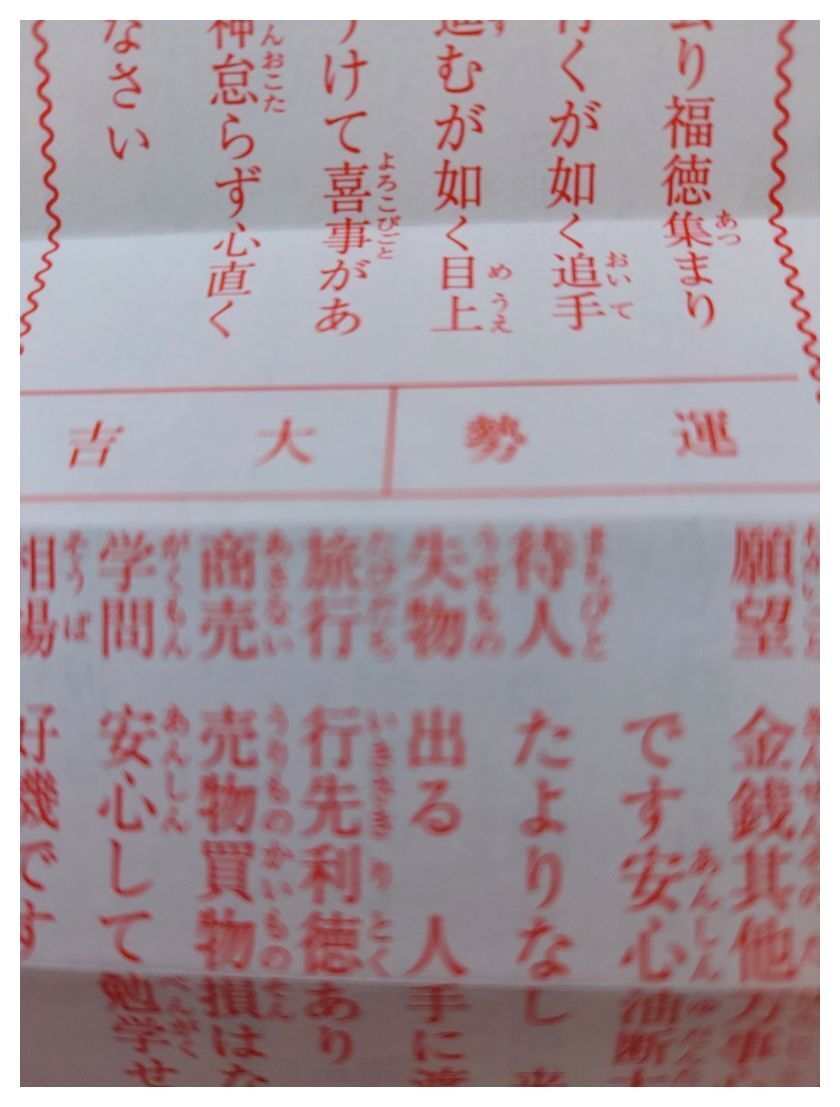 り福徳集まり
くが如く追手
むが如く目上
けて喜事があ
神怠らず心直く
なさい
運勢
大吉
願望 金銭其他万事
です安心油断大
待人 たよりなし 来
失物 出る 人手に渡
旅行 行先利徳あり
商売 売物買物損はな
学問 安心して勉学せ
相場 好機です